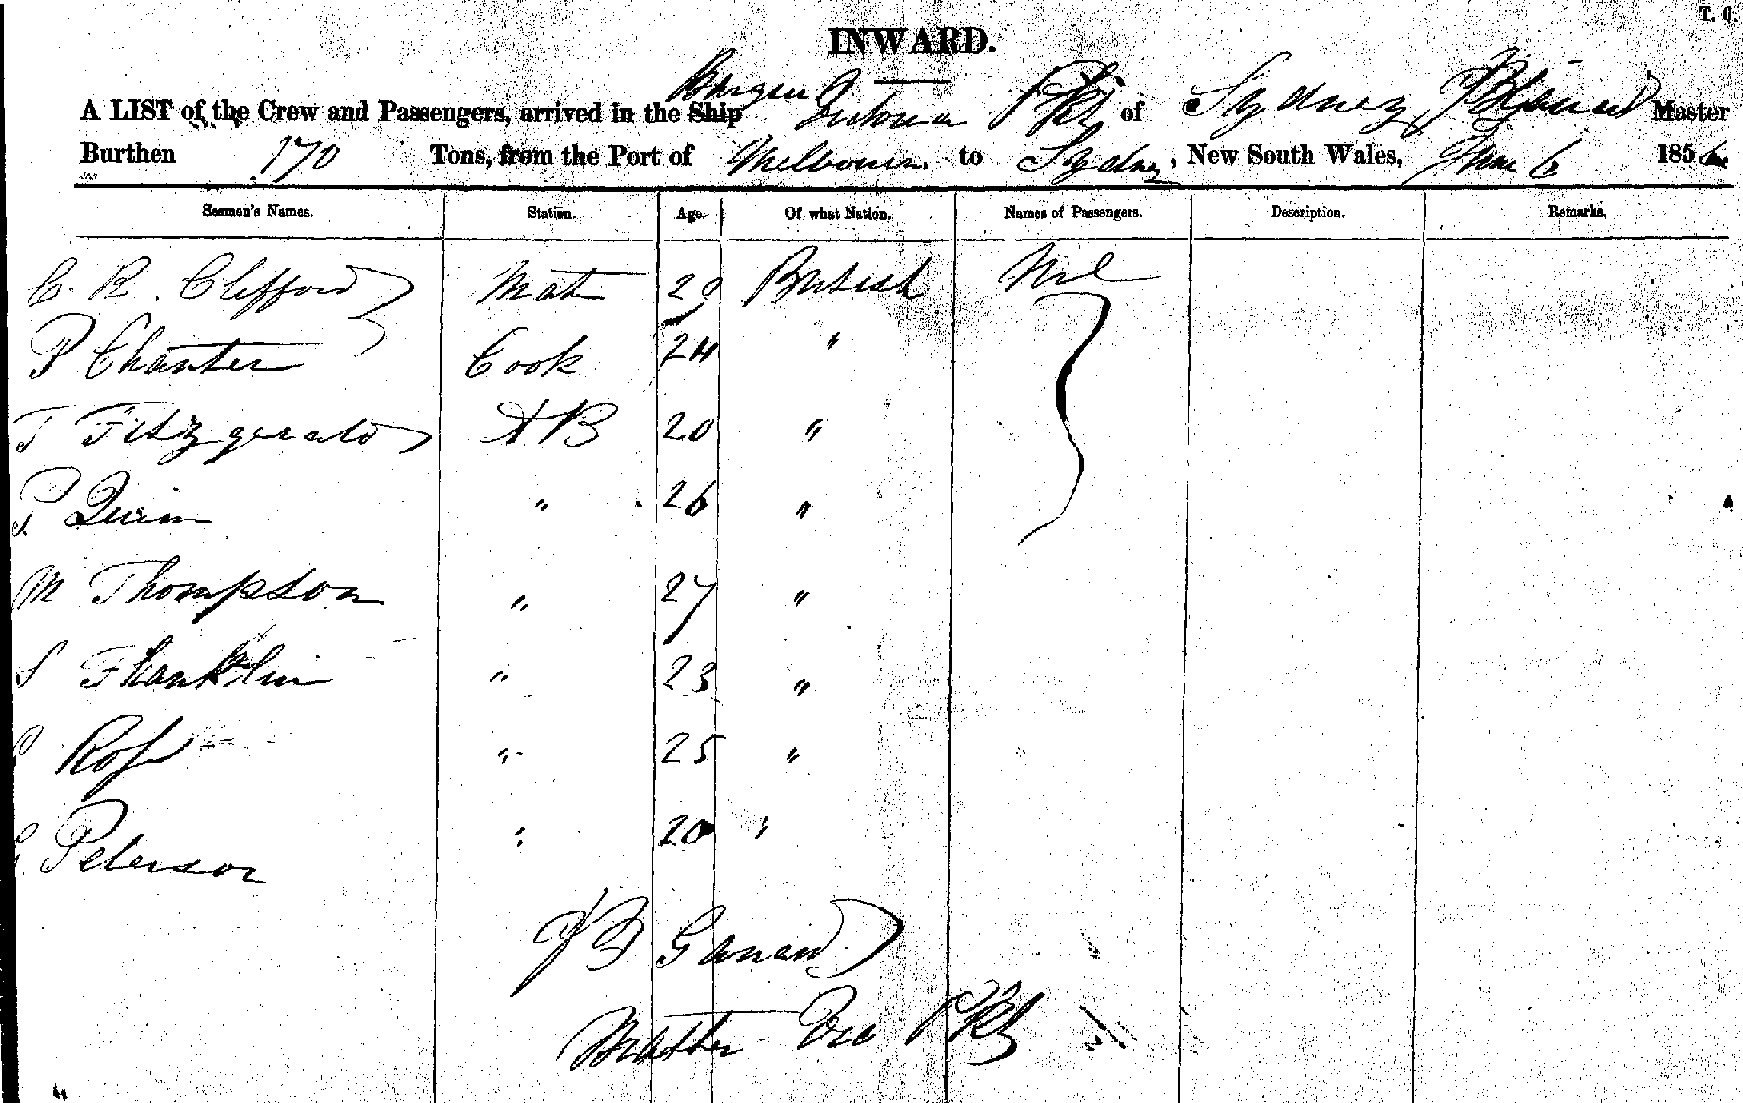 T. C.
INWARD.
A LIST of the Crew and Passengers, arrived in the Ship Pkt of Sydney, Master
Burthen 170 Tons, from the Port of Melbourne to Sydney, New South Wales, June 6 185
Seamen's Names. Station. Age. Of what Nation. Names of Passengers. Description. Remarks.
C. R. Clifford Mate 29 British Nil
P Chanter Cook 24 "
T Fitzgerald AB 20 " "
P Quinn " 26 "
M Thompson " 27 "
S Franklin " 23 "
Ross " 25 "
Peterson " 20 "
Master Pkt